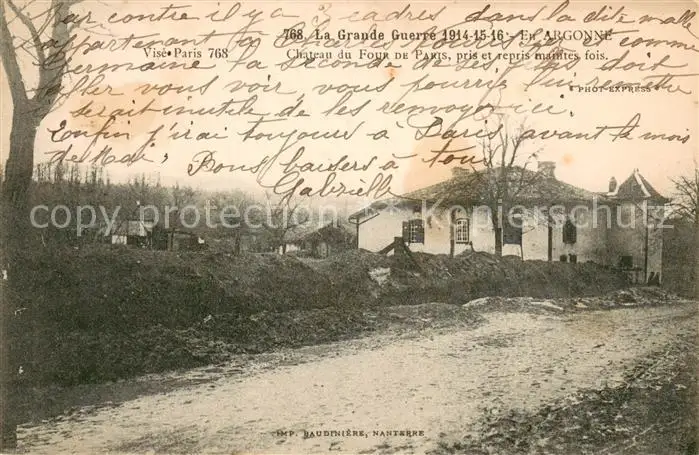 Par contre il y a 3 cadres dans la dite malle
768. La Grande Guerre 1914-15-16 - En ARGONNE
appartenant à comme
Visé Paris 768
Chateau du FOUR DE PARIS, pris et repris maintes fois.
Germaine la seconde de ses doit
aller vous voir, vous pourriez lui remettre
" PHOT-EXPRESS "
serait inutile de les renvoyer ici.
Enfin j'irai toujours à Paris avant le mois
de Mai,
Bons baisers à tous
Gabrielle
copyright protection by Kopierschutz
IMP. BAUDINIÈRE, NANTERRE